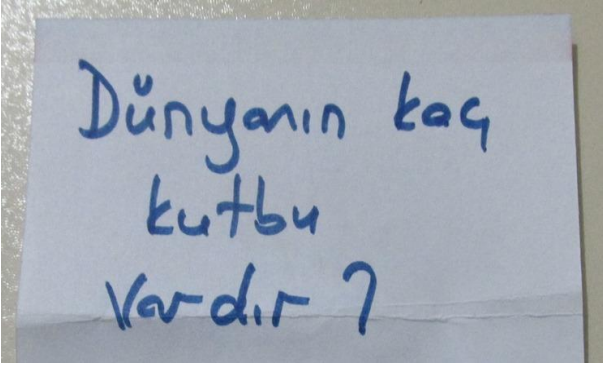 Dünyanın kaç
kutbu
vardır?